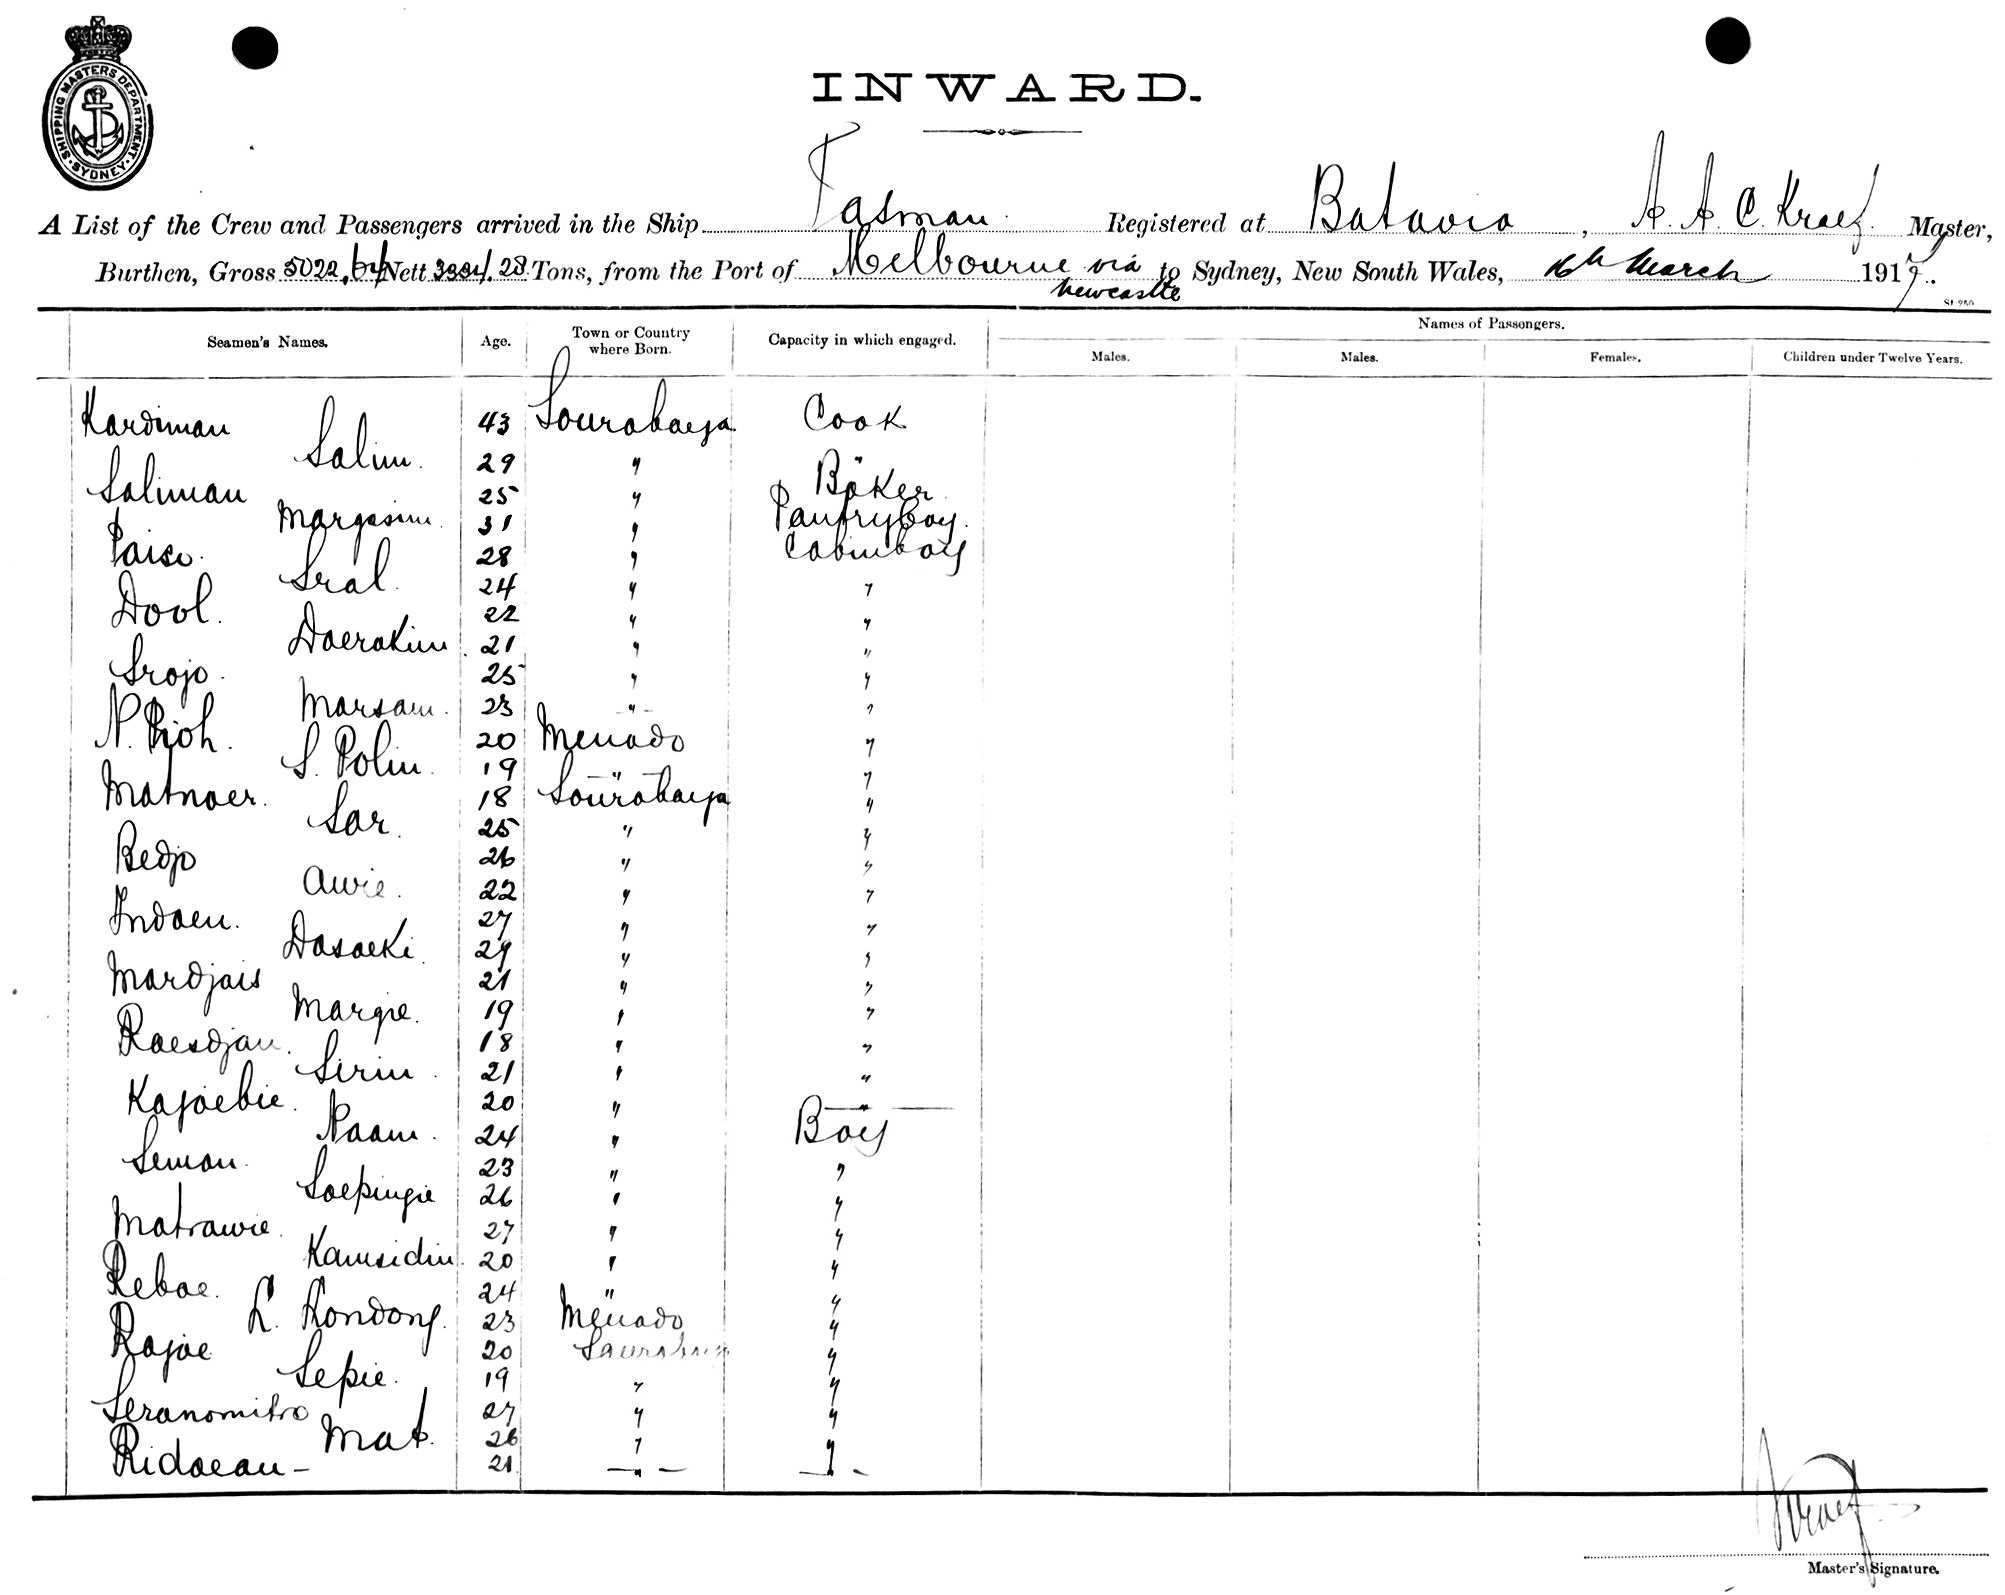 SHIPPING MASTERS DEPARTMENT. SYDNEY
INWARD.
A List of the Crew and Passengers arrived in the Ship Tasman Registered at Batavia, A. A. C. Kraef. Master,
Burthen, Gross 5022, Nett 28 Tons, from the Port of Melbourne via Newcastle to Sydney, New South Wales, 16th March 1917.
Seamen's Names. Age. Town or Country where Born. Capacity in which engaged. Names of Passengers.
Males. Males. Females. Children under Twelve Years.
Kardiman 43 Sourabaya Cook
Salim. 29 "
Saliman 25 " Baker
Margasim. 31 " Pantryboy.
Paiso. 28 " Cabinboy
Sral. 24 " "
Dool. 22 " "
Daerakim. 21 " "
Srojo. 25 " "
Marsam. 23 " "
N. Pioh. 20 Menado "
S. Polin. 19 " "
Matnaer. 18 Sourabaya "
Sar. 25 " "
Bedjo 26 " "
Awie. 22 " "
Indaen. 27 " "
Dasaeki. 29 " "
Mardjais 21 " "
Margie. 19 " "
Raesdjan. 18 " "
Sirin. 21 " "
Kajaebie. 20 " "
Naam. 24 " Boy
Seman. 23 " "
Saepingie 26 " "
Matrawie. 27 " "
Kamsidin. 20 " "
Rebae. 24 " "
L. Rondong. 23 Menado "
Rajae 20 Sourabaya "
Sepie. 19 " "
Seranomitro 27 " "
Mat. 26 " "
Ridaeau - 21 " "
Kraef
Master's Signature.